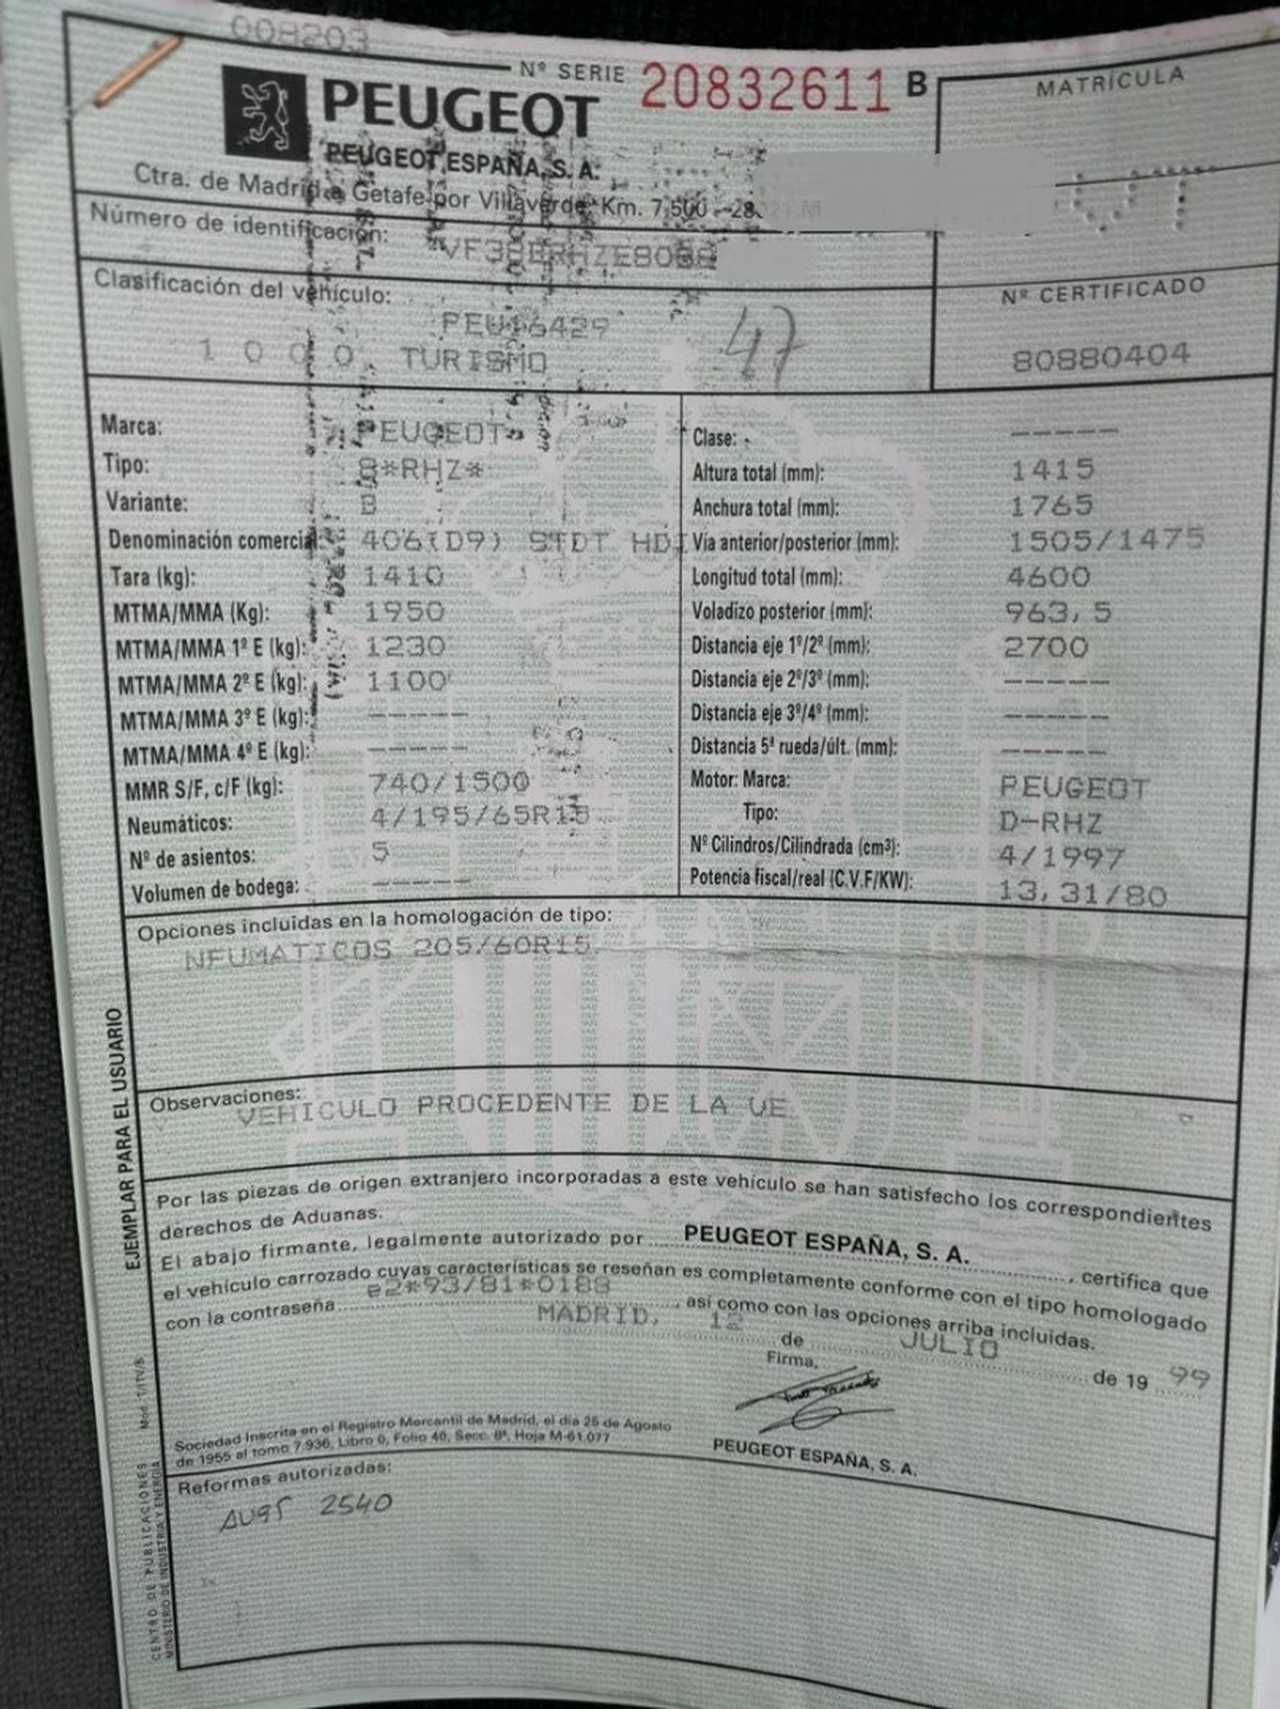 008203
Nº SERIE 20832611 B
MATRÍCULA
PEUGEOT
PEUGEOT ESPAÑA, S. A.
Ctra. de Madrid a Getafe por Villaverde Km. 7,500 - 28.
Número de identificación:
Clasificación del vehículo:
PEU16429
1 0 0 0. TURISMO
47
Nº CERTIFICADO
80880404
Marca: PEUGEOT
Tipo: 8*RHZ*
Variante: B
Denominación comercial: 406(D9) STDT HDI
Tara (kg): 1410
MTMA/MMA (Kg): 1950
MTMA/MMA 1º E (kg): 1230
MTMA/MMA 2º E (kg): 1100
MTMA/MMA 3º E (kg): -----
MTMA/MMA 4º E (kg): -----
MMR S/F, c/F (kg): 740/1500
Neumáticos: 4/195/65R15
Nº de asientos: 5
Volumen de bodega: -----
Clase: -----
Altura total (mm): 1415
Anchura total (mm): 1765
Vía anterior/posterior (mm): 1505/1475
Longitud total (mm): 4600
Voladizo posterior (mm): 963,5
Distancia eje 1º/2º (mm): 2700
Distancia eje 2º/3º (mm): -----
Distancia eje 3º/4º (mm): -----
Distancia 5ª rueda/últ. (mm): -----
Motor: Marca: PEUGEOT
Tipo: D-RHZ
Nº Cilindros/Cilindrada (cm³): 4/1997
Potencia fiscal/real (C.V.F/KW): 13,31/80
Opciones incluidas en la homologación de tipo:
NEUMATICOS 205/60R15.
Observaciones:
VEHICULO PROCEDENTE DE LA UE
Por las piezas de origen extranjero incorporadas a este vehículo se han satisfecho los correspondientes
derechos de Aduanas.
El abajo firmante, legalmente autorizado por PEUGEOT ESPAÑA, S. A. , certifica que
el vehículo carrozado cuyas características se reseñan es completamente conforme con el tipo homologado
con la contraseña e2*93/81*0188 , así como con las opciones arriba incluidas.
MADRID, 12 de JULIO de 19 99
Firma,
PEUGEOT ESPAÑA, S. A.
Sociedad Inscrita en el Registro Mercantil de Madrid, el día 25 de Agosto
de 1955 al tomo 7.936, Libro 0, Folio 40, Secc. 8ª, Hoja M-61.077
Reformas autorizadas:
2540
EJEMPLAR PARA EL USUARIO
Mod. T/ITV/B
CENTRO DE PUBLICACIONES
MINISTERIO DE INDUSTRIA Y ENERGIA